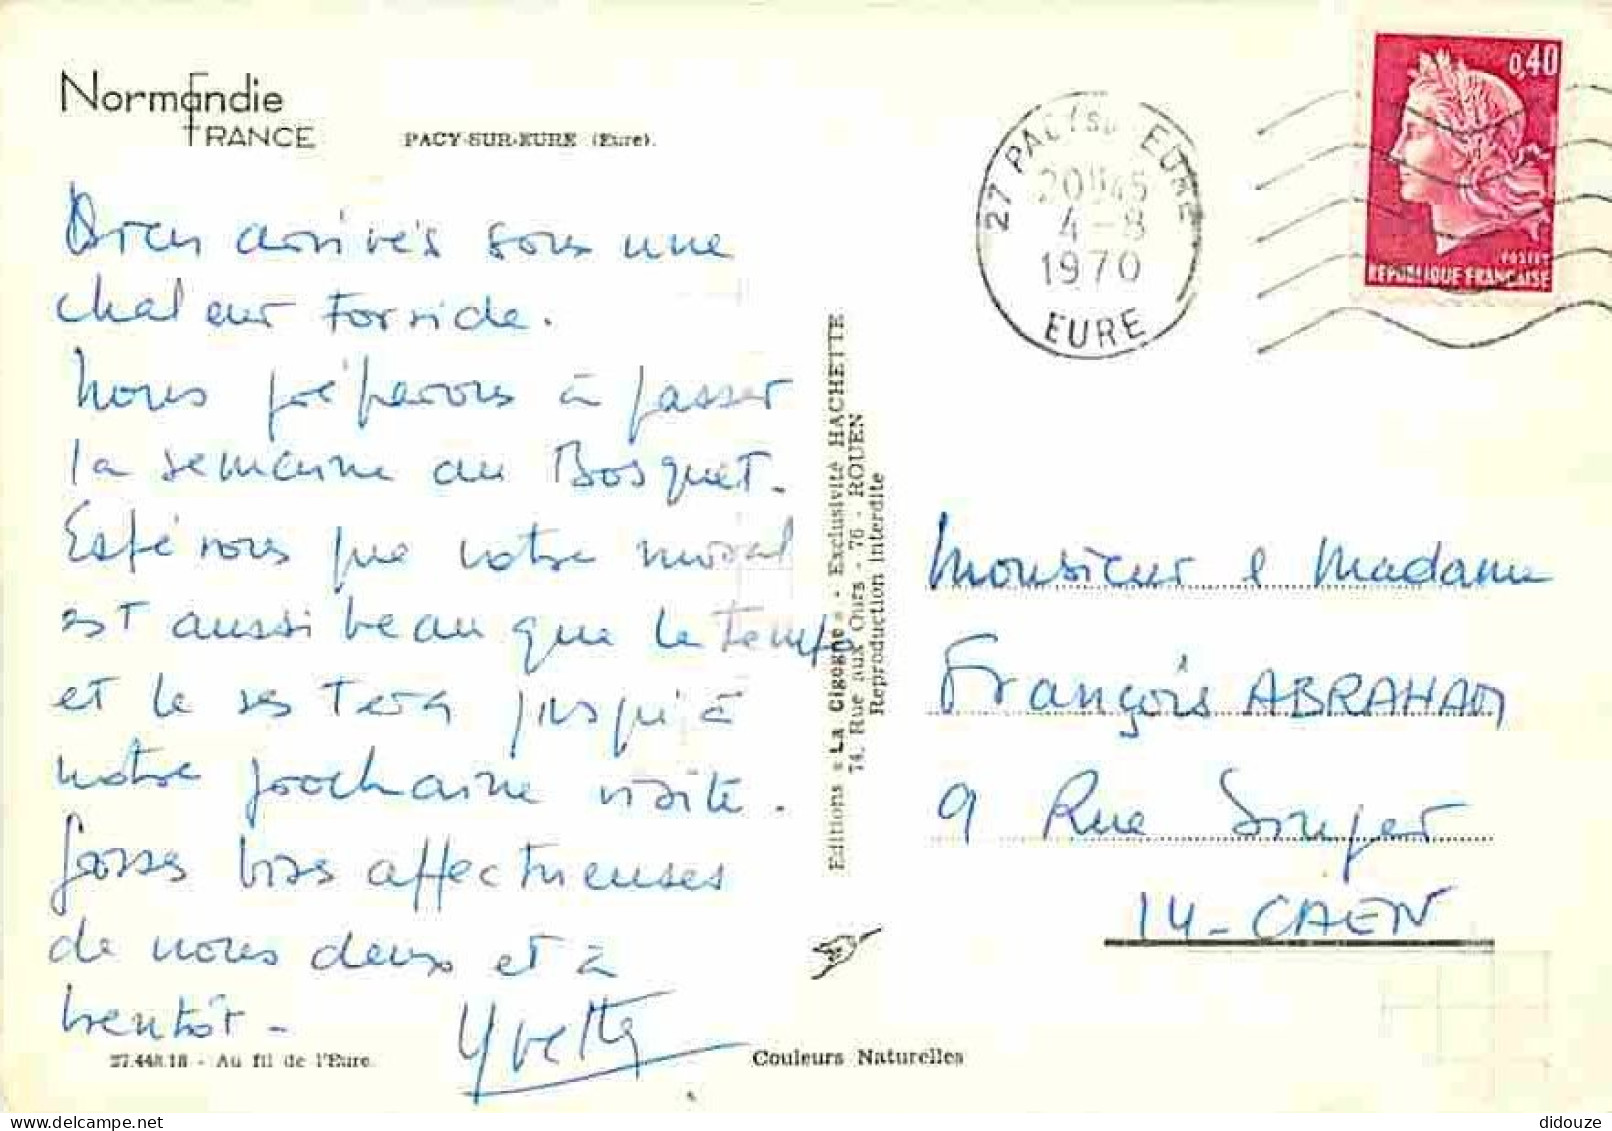 Normandie
FRANCE
PACY-SUR-EURE (Eure).
Bien arrivés sous une
chaleur torride.
Nous préparons à passer
la semaine au Bosquet.
Espérons que votre moral
est aussi beau que le temps
et le restera jusqu'à
notre prochaine visite.
Grosses bises affectueuses
de nous deux et à
bientôt.
Yvette
27.448.18 - Au fil de l'Eure.
Couleurs Naturelles
Editions « La Cigogne » - Exclusivité HACHETTE
74, Rue aux Ours - 76 - ROUEN
Reproduction interdite
27 PACY SUR EURE
20H45
4-8
1970
EURE
0,40
POSTES
REPUBLIQUE FRANÇAISE
Monsieur e Madame
François ABRAHAM
9 Rue Singer
14-CAEN
didouze